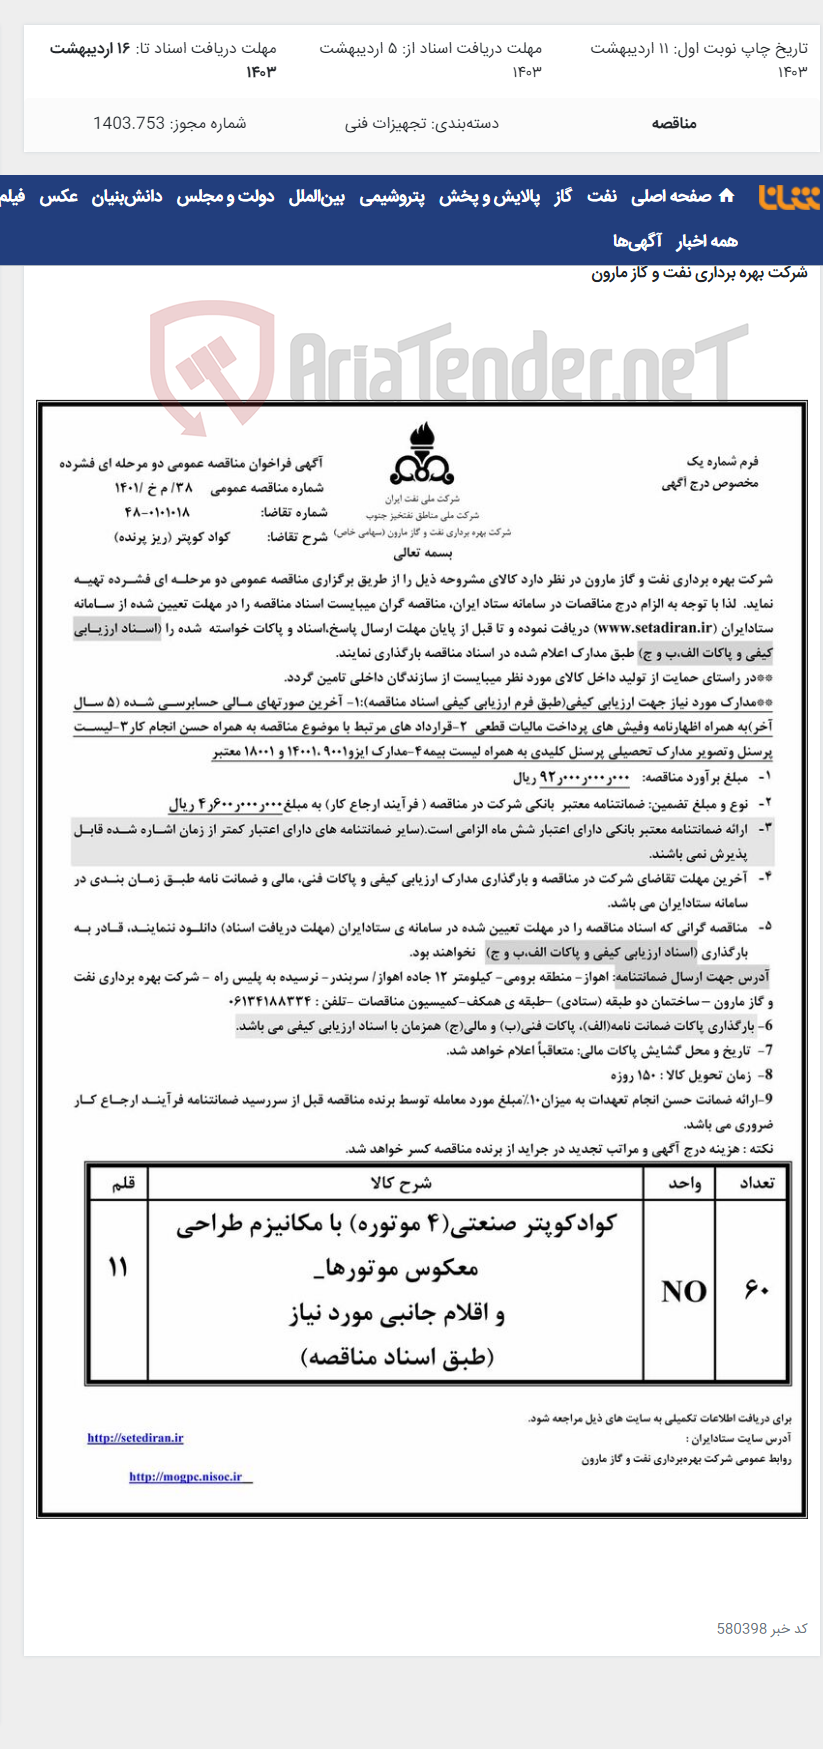 تاریخ چاپ نوبت اول: ۱۱ اردیبهشت ۱۴۰۳
مهلت دریافت اسناد از: ۵ اردیبهشت ۱۴۰۳
مهلت دریافت اسناد تا: ۱۶ اردیبهشت ۱۴۰۳
مناقصه
دسته‌بندی: تجهیزات فنی
شماره مجوز: 1403.753
شانا
صفحه اصلی نفت گاز پالایش و پخش پتروشیمی بین‌الملل دولت و مجلس دانش‌بنیان عکس فیلم
همه اخبار آگهی‌ها
شرکت بهره برداری نفت و گاز مارون
AriaTender.neT
فرم شماره یک
مخصوص درج آگهی
شرکت ملی نفت ایران
شرکت ملی مناطق نفتخیز جنوب
شرکت بهره برداری نفت و گاز مارون (سهامی خاص)
بسمه تعالی
آگهی فراخوان مناقصه عمومی دو مرحله ای فشرده
شماره مناقصه عمومی ۳۸/ م خ /۱۴۰۱
شماره تقاضا: ۰۱۰۱۰۱۸-۴۸
شرح تقاضا: کواد کوپتر (ریز پرنده)
شرکت بهره برداری نفت و گاز مارون در نظر دارد کالای مشروحه ذیل را از طریق برگزاری مناقصه عمومی دو مرحلـه ای فشـرده تهیـه
نماید. لذا با توجه به الزام درج مناقصات در سامانه ستاد ایران، مناقصه گران میبایست اسناد مناقصه را در مهلت تعیین شده از سـامانه
ستادایران (www.setadiran.ir) دریافت نموده و تا قبل از پایان مهلت ارسال پاسخ،اسناد و پاکات خواسته شده را (اسـناد ارزیـابی
کیفی و پاکات الف،ب و ج) طبق مدارک اعلام شده در اسناد مناقصه بارگذاری نمایند.
**در راستای حمایت از تولید داخل کالای مورد نظر میبایست از سازندگان داخلی تامین گردد.
**مدارک مورد نیاز جهت ارزیابی کیفی(طبق فرم ارزیابی کیفی اسناد مناقصه):۱- آخرین صورتهای مـالی حسابرسـی شـده (۵ سـال
آخر)به همراه اظهارنامه وفیش های پرداخت مالیات قطعی ۲-قرارداد های مرتبط با موضوع مناقصه به همراه حسن انجام کار۳-لیسـت
پرسنل وتصویر مدارک تحصیلی پرسنل کلیدی به همراه لیست بیمه۴-مدارک ایزو۹۰۰۱ ،۱۴۰۰۱ و ۱۸۰۰۱ معتبر
۱- مبلغ برآورد مناقصه: ۹۲ر۰۰۰ر۰۰۰ر۰۰۰ ریال
۲- نوع و مبلغ تضمین: ضمانتنامه معتبر بانکی شرکت در مناقصه ( فرآیند ارجاع کار) به مبلغ۴ر۶۰۰ر۰۰۰ر۰۰۰ ریال
۳- ارائه ضمانتنامه معتبر بانکی دارای اعتبار شش ماه الزامی است.(سایر ضمانتنامه های دارای اعتبار کمتر از زمان اشـاره شـده قابـل
پذیرش نمی باشند.
۴- آخرین مهلت تقاضای شرکت در مناقصه و بارگذاری مدارک ارزیابی کیفی و پاکات فنی، مالی و ضمانت نامه طبـق زمـان بنـدی در
سامانه ستادایران می باشد.
۵- مناقصه گرانی که اسناد مناقصه را در مهلت تعیین شده در سامانه ی ستادایران (مهلت دریافت اسناد) دانلـود ننماینـد، قـادر بـه
بارگذاری (اسناد ارزیابی کیفی و پاکات الف،ب و ج) نخواهند بود.
آدرس جهت ارسال ضمانتنامه: اهواز- منطقه برومی- کیلومتر ۱۲ جاده اهواز/ سربندر- نرسیده به پلیس راه - شرکت بهره برداری نفت
و گاز مارون –ساختمان دو طبقه (ستادی) –طبقه ی همکف-کمیسیون مناقصات -تلفن : ۰۶۱۳۴۱۸۸۳۳۴
6- بارگذاری پاکات ضمانت نامه(الف)، پاکات فنی(ب) و مالی(ج) همزمان با اسناد ارزیابی کیفی می باشد.
7- تاریخ و محل گشایش پاکات مالی: متعاقباً اعلام خواهد شد.
8- زمان تحویل کالا : ۱۵۰ روزه
9-ارائه ضمانت حسن انجام تعهدات به میزان۱۰٪مبلغ مورد معامله توسط برنده مناقصه قبل از سررسید ضمانتنامه فرآینـد ارجـاع کـار
ضروری می باشد.
نکته : هزینه درج آگهی و مراتب تجدید در جراید از برنده مناقصه کسر خواهد شد.
تعداد واحد شرح کالا قلم
۶۰ NO کوادکوپتر صنعتی(۴ موتوره) با مکانیزم طراحی ۱۱
معکوس موتورها_
و اقلام جانبی مورد نیاز
(طبق اسناد مناقصه)
برای دریافت اطلاعات تکمیلی به سایت های ذیل مراجعه شود.
آدرس سایت ستادایران : http://setediran.ir
روابط عمومی شرکت بهره‌برداری نفت و گاز مارون
http://mogpc.nisoc.ir
کد خبر 580398